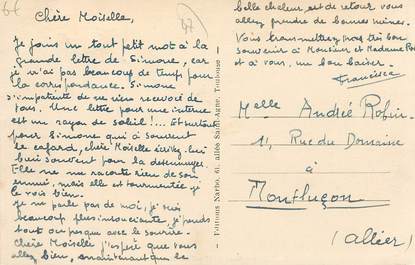 66
Chère Moiselle,
Je joins un tout petit mot à la
grande lettre de Simone, car
je n'ai pas beaucoup de temps pour
la correspondance. Simone
s'impatiente de ne rien recevoir de
vous. Une lettre pour une interne
est un rayon de soleil!... Et surtout
pour Simone qui a souvent
le cafard, chère Moiselle écrivez-lui
bien souvent pour la desennuyer.
Elle ne me raconte rien de son
ennui, mais elle est tourmentée je
le vois bien.
Je ne parle pas de moi, je suis
beaucoup plus insouciante, je prends
tout ou presque avec le sourire.
Chère Moiselle j'espère que vous
allez bien, maintenant que la
Editions Narbo, 61, allée Saint-Agne, Toulouse
belle chaleur est de retour vous
allez prendre de bonnes mines.
Vous transmettrez mon très bon
souvenir à Monsieur et Madame
et à vous, un bon baiser.
Francisca
Melle André Robin
11, Rue du Domaine
à
Montluçon
(Allier)